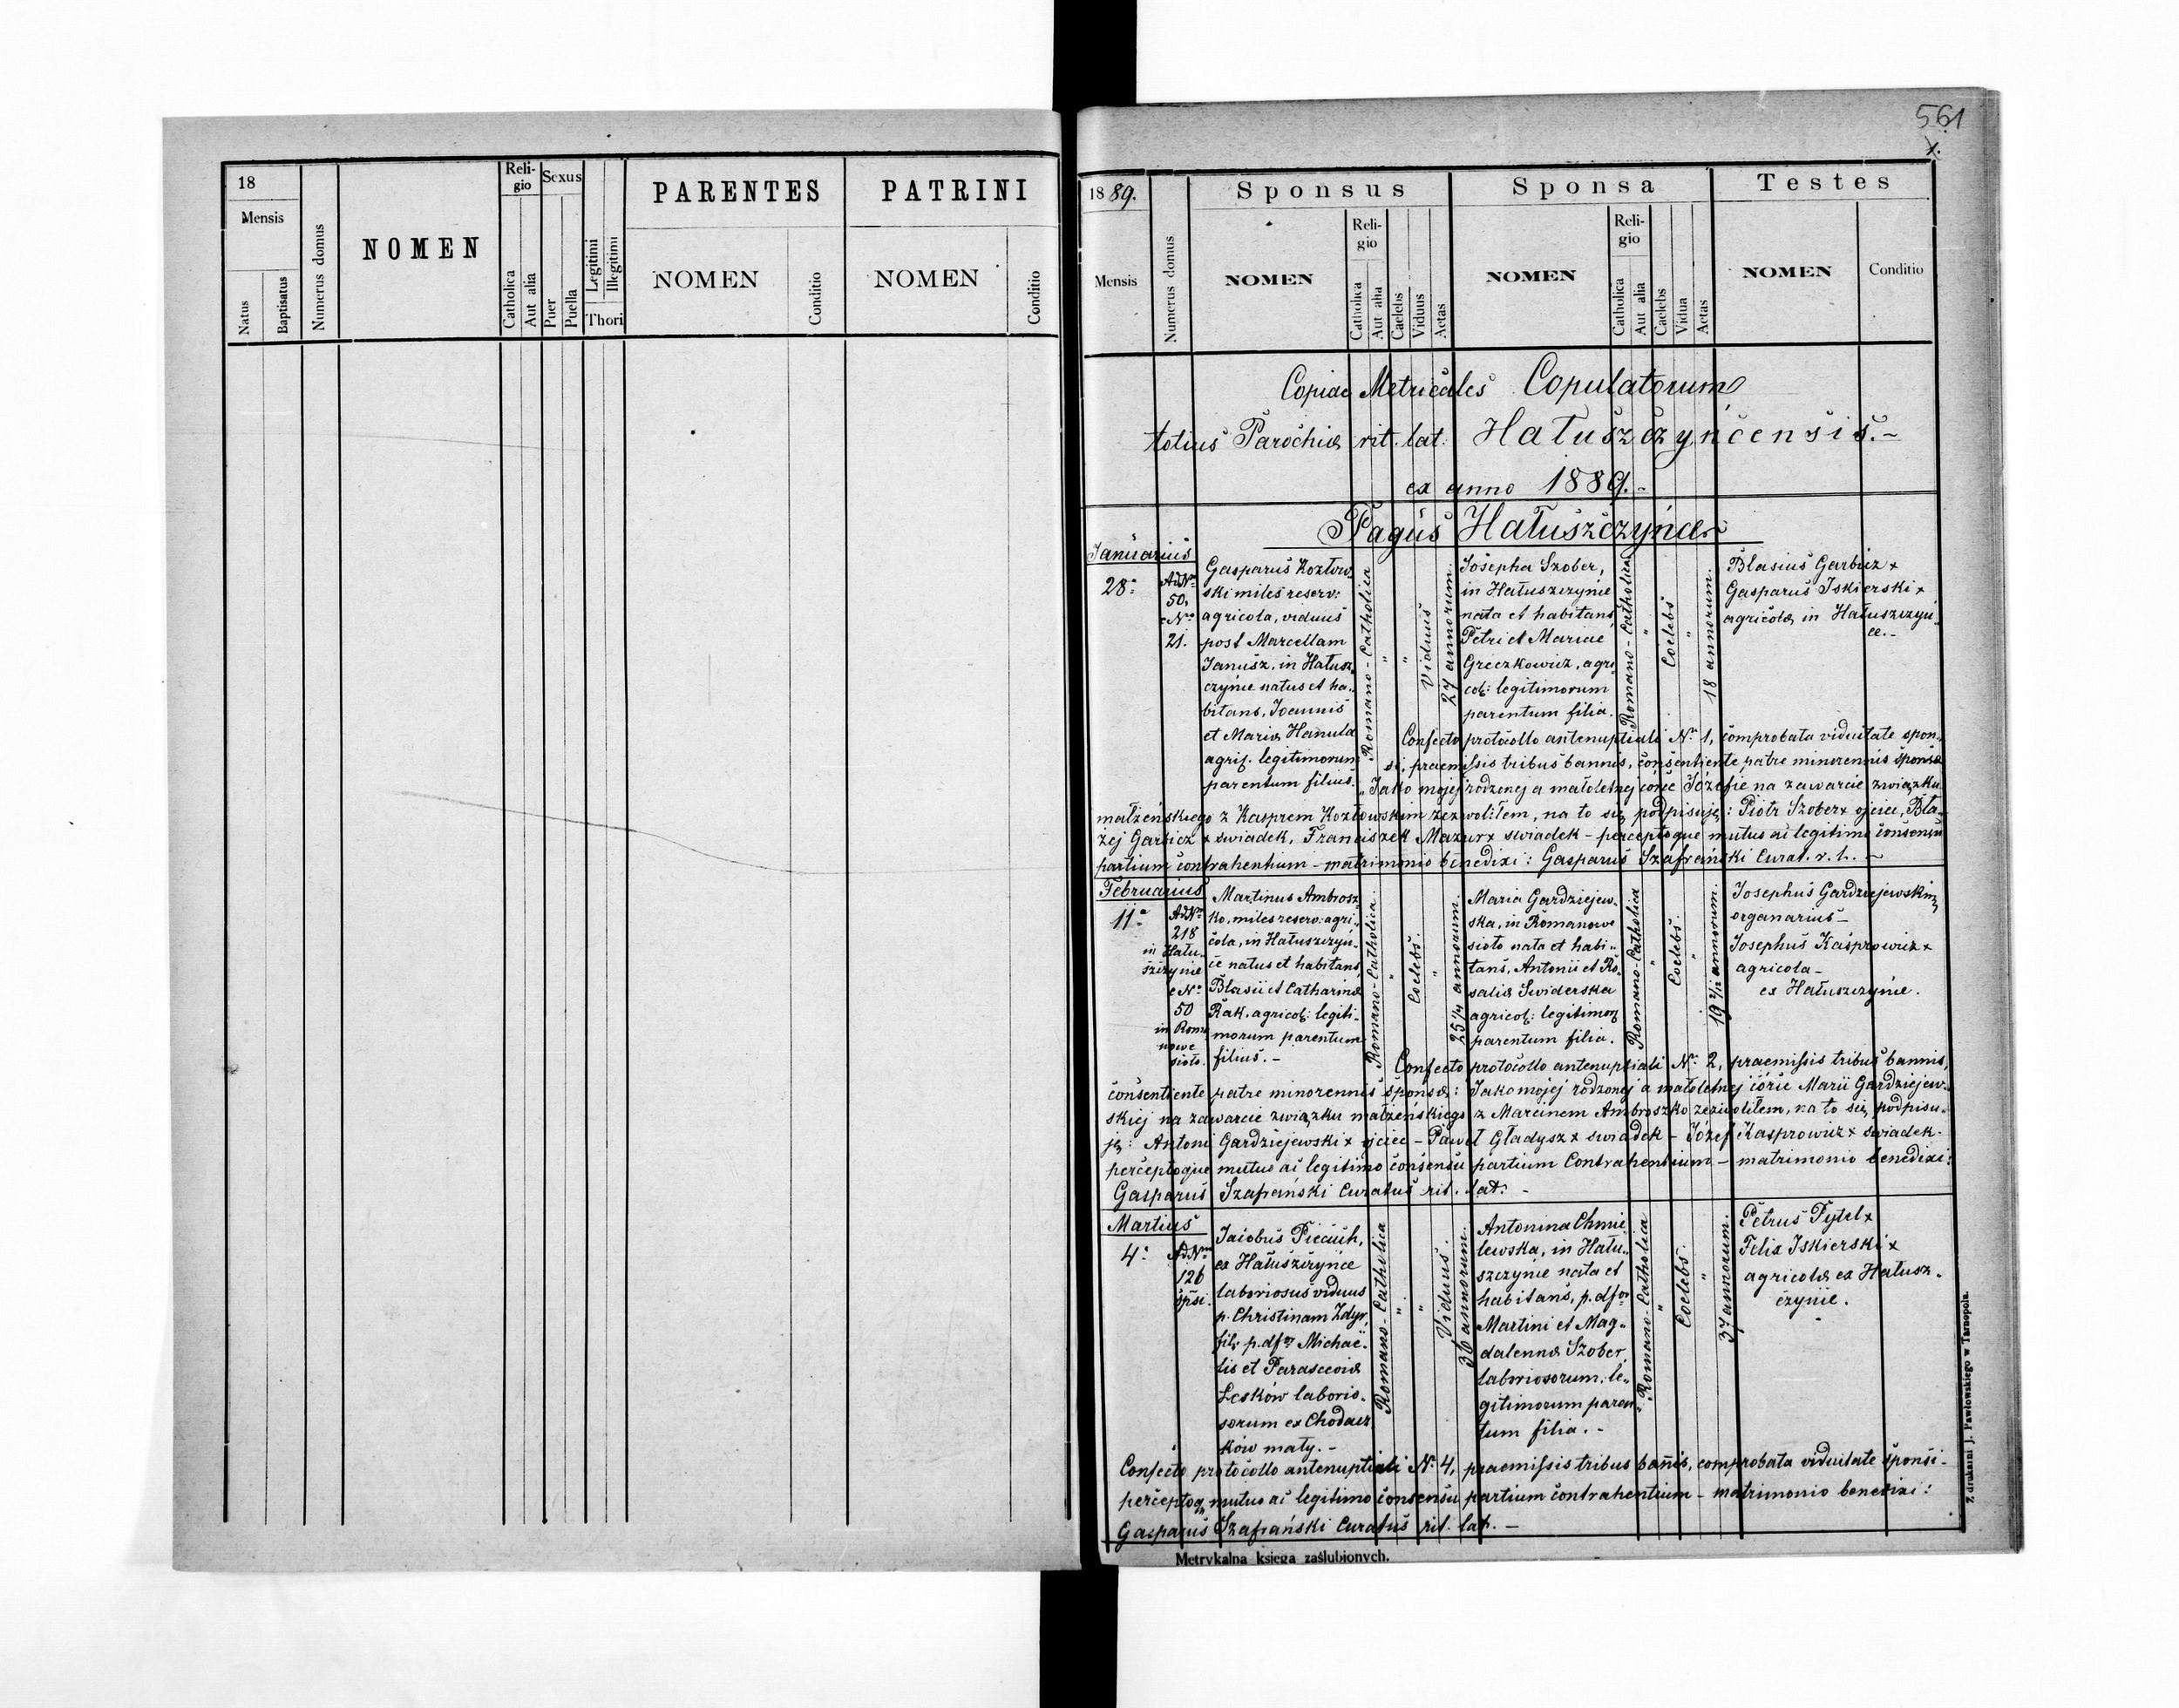 18
Mensis
Natus
Baptisatus
Numerus domus
NOMEN
Reli-
gio
Catholica
Aut alia
Sexus
Puer
Puella
Legitimi
Illegitimi
Thori
PARENTES
NOMEN
Conditio
PATRINI
NOMEN
Conditio
561
1889.
Mensis
Numerus domus
Sponsus
NOMEN
Reli-
gio
Catholica
Aut alia
Caelebs
Viduus
Aetas
Sponsa
NOMEN
Reli-
gio
Catholica
Aut alia
Caelebs
Vidua
Aetas
Testes
NOMEN
Conditio
Copiae Metricales Copulatorum
totius Parochiæ rit. lat. Hałuszczyńcensis.-
ex anno 1889.-
Pagus Hałuszczyńce
Januarius
28ª
Ad Nm
50,
e No
21.
Gasparus Kozłow-
ski miles reserv:
agricola, viduus
post Marcellam
Janusz, in Hałusz-
czyńce natus et ha-
bitans, Joannis
et Mariæ Hanula
agric. legitimorum
parentum filius.
Romano-Catholica
"
"
Viduus
27 annorum.
Josepha Szober,
in Hałuszczyńce
nata et habitans
Petri et Mariae
Greczkowicz, agri
col: legitimorum
parentum filia.
Romano-Catholica
"
Coelebs
"
18 annorum.
Blasius Garbicz x
Gasparus Iskierski x
agricolæ in Hałuszczyń-
ce.-
Confecto protocollo antenuptiali No 1, comprobata viduitate spon-
si, praemissis tribus bannis, consentiente patre minorennis sponsæ
"Jako mojej rodzonej a małoletnej córce Józefie na zawarcie związku
małżeńskiego z Kasprem Kozłowskim zezwoliłem, na to się podpisuję: Piotr Szober x ojciec, Bła-
żej Garbicz x swiadek, Franciszek Mazur x swiadek - perceptoque mutuo ac legitimo consensu
partium contrahentium - matrimonio benedixi: Gasparus Szafrański Curat. r. l. -
Februarius
11ª
Ad Nm
218
in Hału-
szczyńce
e No
50
in Roma
nowe
sioło.
Martinus Ambrosz
ko, miles reserv: agri-
cola, in Hałuszczyń-
ce natus et habitans,
Blasii et Catharinæ
Rak, agricol: legiti-
morum parentum
filius.-
Romano-Catholica.
"
Coelebs.
"
25 1/4 annorum.
Maria Gardziejew-
ska, in Romanowe
sioło nata et habi-
tans, Antonii et Ro-
saliæ Swiderska
agricol: legitimor
parentum filia.
Romano-Catholica
"
Coelebs.
"
19 2/12 annorum.
Josephus Gardziejewski
organarius -
Josephus Kasprowicz x
agricola -
ex Hałuszczyńce.
Confecto protocollo antenuptiali No 2, praemissis tribus bannis,
consentiente patre minorennis sponsæ: Jako mojej rodzonej a małoletnej córce Marii Gardziejew-
skiej na zawarcie związku małżeńskiego z Marcinem Ambroszko zezwoliłem, na to się podpisu-
ję: Antoni Gardziejewski x ojciec - Paweł Gładysz x swiadek - Józef Kasprowicz x swiadek -
perceptoque mutuo ac legitimo consensu partium Contrahentium - matrimonio benedixi:
Gasparus Szafrański Curatus rit. lat. -
Martius
4ª
Ad Nm
126
spsi.
Jacobus Piecuch,
ex Hałuszczyńce
laboriosus viduus
p. Christinam Zdyr,
fil: p. dfor Michaë-
lis et Parasceviæ
Leśków laborio-
sorum ex Chodacz
ków mały. -
Romano-Catholica
"
"
Viduus.
36 annorum.
Antonina Chmie
lewska, in Hału-
szczyńce nata et
habitans, p. dfor
Martini et Mag-
dalennæ Szober,
laboriosorum, le-
gitimorum paren
tum filia. -
Romano-Catholica
"
Coelebs.
"
37 annorum.
Petrus Pytel x
Felix Iskierski x
agricolæ ex Hałusz-
czyńce.
Confecto protocollo antenuptiali No 4, praemissis tribus bannis, comprobata viduitate sponsi -
perceptoq mutuo ac legitimo consensu partium contrahentium - matrimonio benedixi:
Gasparus Szafrański Curatus rit. lat. -
Metrykalna księga zaślubionych.
Z drukarni J. Pawłowskiego w Tarnopolu.